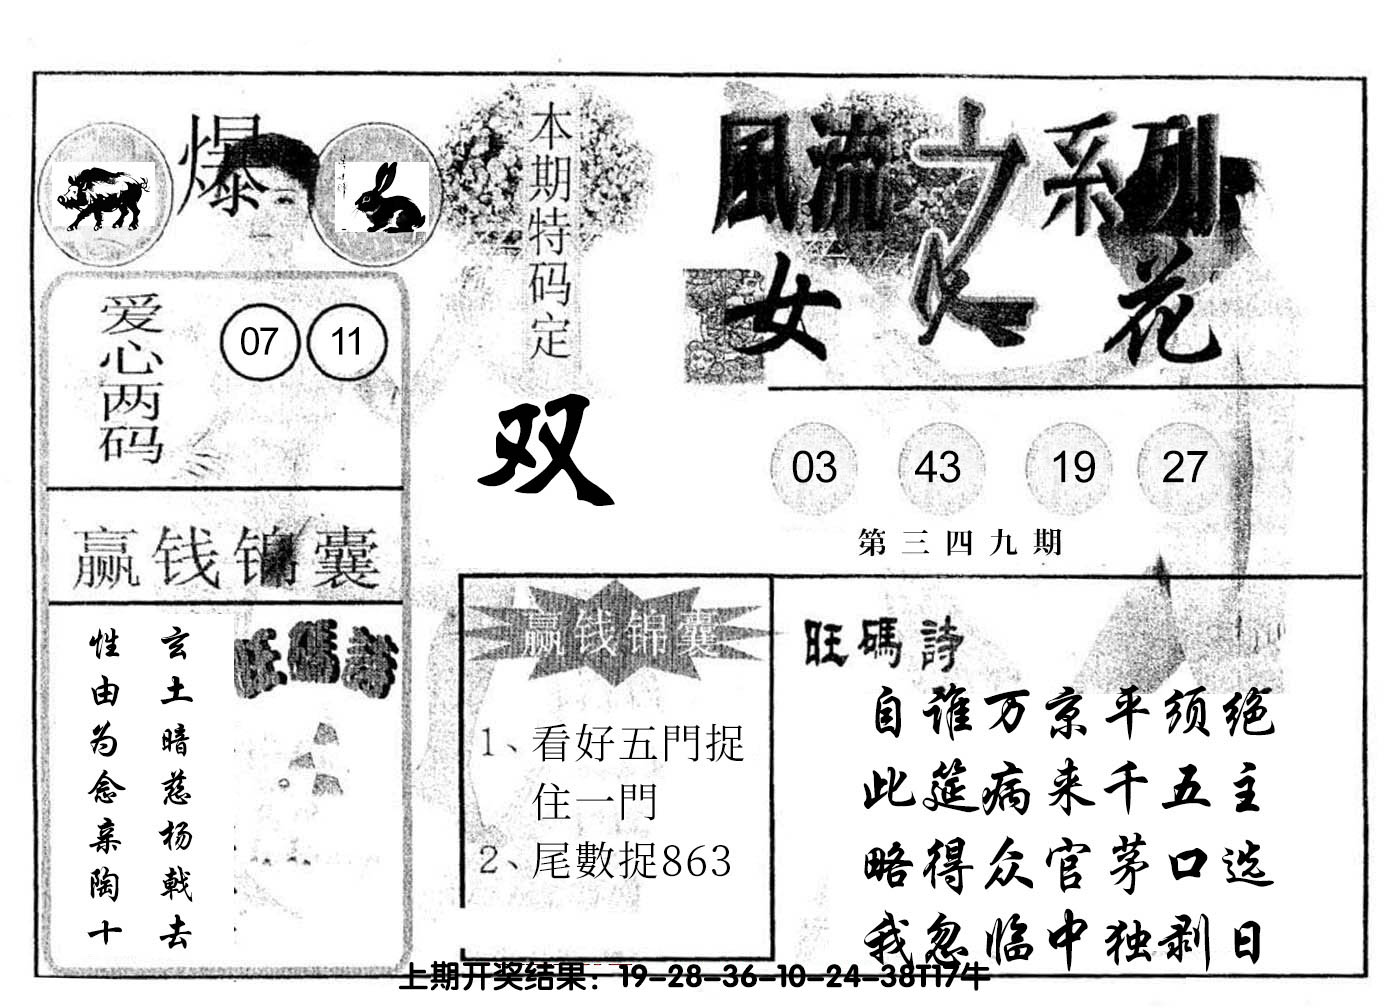 爆
本期特码定
双
風流之系列
女人花
爱心两码
07 11
03 43 19 27
第三四九期
赢钱锦囊
玄土暗慈杨戟去
性由为念亲陶十
旺碼詩
赢钱锦囊
1、看好五門捉
住一門
2、尾數捉863
旺碼詩
自谁万京平须绝
此筵病来千五主
略得众官茅口选
我忽临中独剥日
上期开奖结果：19-28-36-10-24-38T17牛